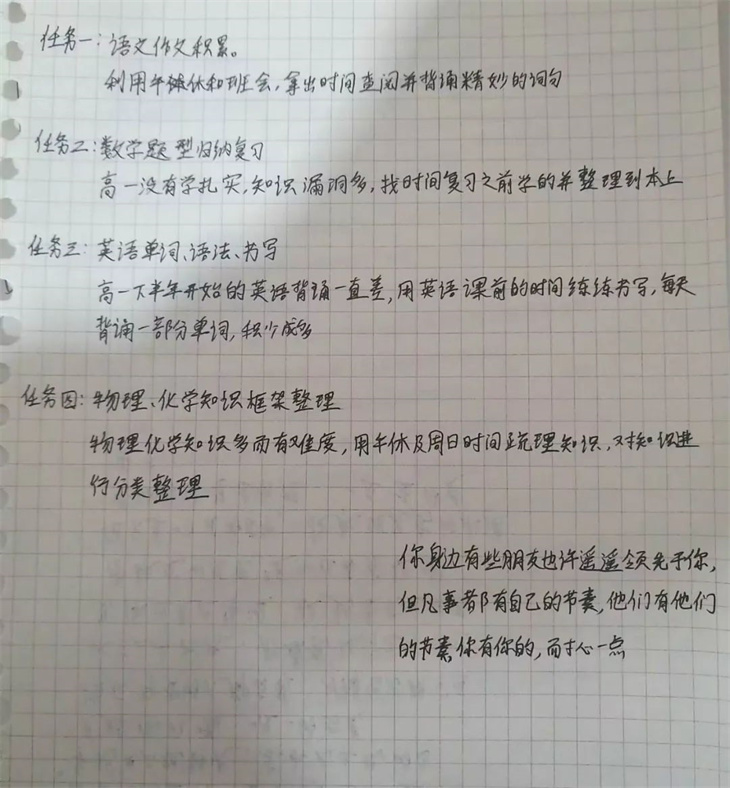 任务一：语文作文积累。
利用午休和班会，拿出时间查阅并背诵精妙的词句
任务二：数学题型归纳复习
高一没有学扎实，知识漏洞多，找时间复习之前学的并整理到本上
任务三：英语单词、语法、书写
高一下半年开始的英语背诵一直差，用英语课前的时间练练书写，每天
背诵一部分单词，积少成多
任务四：物理、化学知识框架整理
物理化学知识多而有难度，用午休及周日时间疏理知识，对知识进
行分类整理
你身边有些朋友也许遥遥领先于你，
但凡事都有自己的节奏，他们有他们
的节奏，你有你的，耐心一点